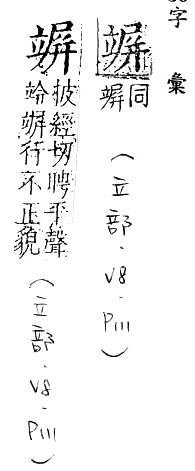 字彙
竮
同竮
（立部．V8．P111）
竮
披經切聘平聲
竛竮行不正貌
（立部．V8．P111）